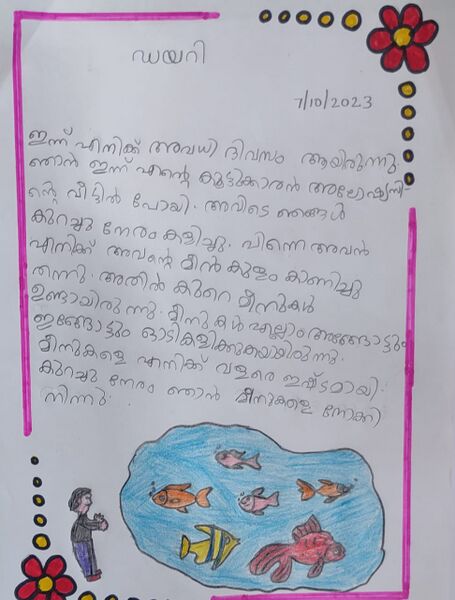 ഡയറി
7/10/2023
ഇന്ന് എനിക്ക് അവധി ദിവസം ആയിരുന്നു.
ഞാൻ ഇന്ന് എന്റെ കൂട്ടിക്കാരൻ
ന്റെ വീട്ടിൽ പോയി. അവിടെ ഞങ്ങൾ
കുറച്ചു നേരം കളിച്ചു. പിന്നെ അവൻ
എനിക്ക് അവന്റെ മീൻ കുളം കാണിച്ചു
തന്നു. അതിൽ കുറെ മീനുകൾ
ഉണ്ടായിരുന്നു. മീനുകൾ എല്ലാം അങ്ങോട്ടും
ഇങ്ങോട്ടും ഓടികളിക്കുകയായിരുന്നു.
മീനുകളെ എനിക്ക് വളരെ ഇഷ്ടമായി.
കുറച്ചു നേരം ഞാൻ മീനുകളെ നോക്കി
നിന്നു.